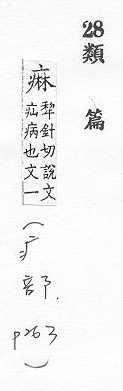 28類篇
痳
犁針切說文
疝病也文一
(疒部. p263)